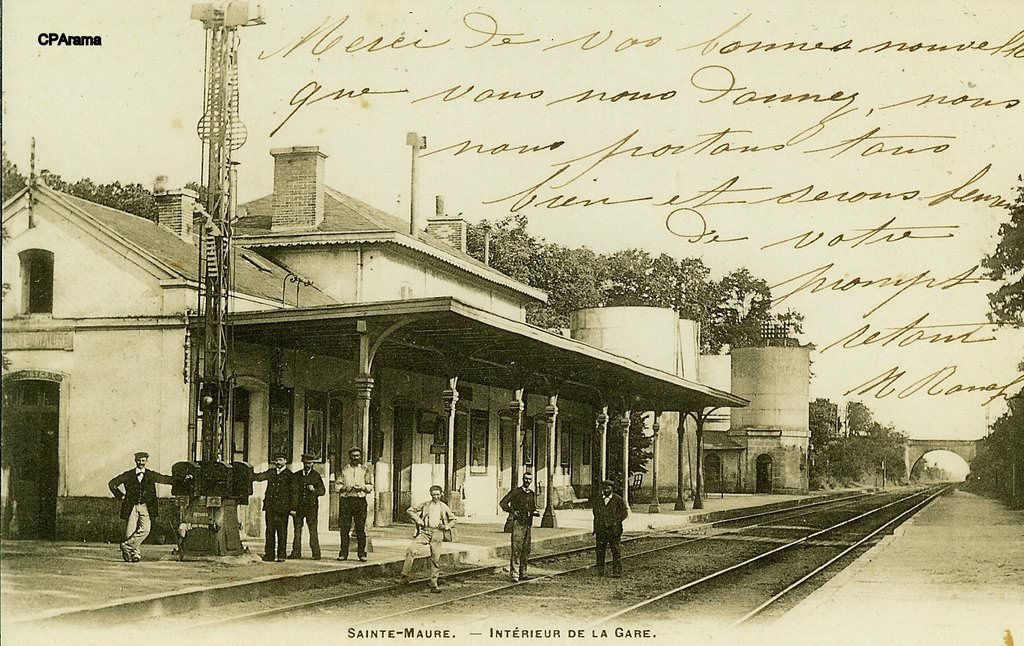 CPArama
Merci de vos bonnes nouvelles
que vous nous donnez, nous
nous portons tous
bien et serons heureux
de votre
prompt
retour
SAINTE-MAURE. — INTÉRIEUR DE LA GARE.